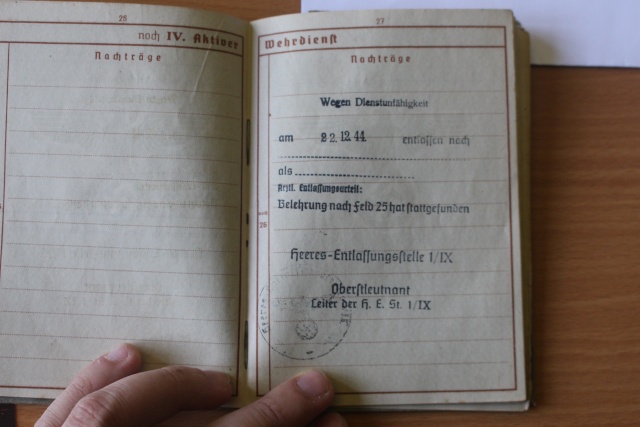 26
noch IV. Aktiver
Nachträge
27
Wehrdienst
Nachträge
Wegen Dienstunfähigkeit
am 22.12.44. entlassen nach
als
Ärztl. Entlassungsurteil:
Belehrung nach Feld 25 hat stattgefunden
Heeres-Entlassungsstelle 1/IX
Oberstleutnant
Leiter der H. E. St. 1/IX